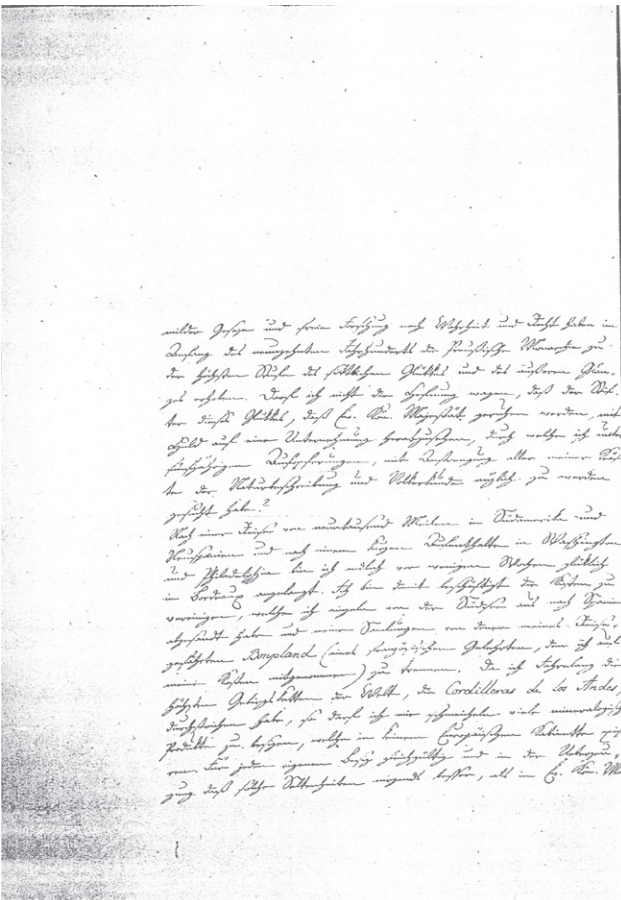 milder Geseze und freie Forschung nach Wahrheit und Recht haben im
Anfang des neunzehnten Jahrhunderts die Preußische Monarchie zu
der höchsten Stufe des sittlichen Glükkes und des äußeren Glan-
zes erhoben. Darf ich nicht die Hofnung wagen, daß der Stif-
ter dieses Glükkes, daß Ew. Kön. Majestät geruhen werden, mit
Huld auf eine Unternehmung herabzusehen, durch welche ich unter
fünfjährigen Aufopferungen, mit Anstrengung aller meiner Kräf-
te der Naturbeschreibung und Völkerkunde nüzlich zu werden
gesucht habe?
Nach einer Reise von neuntausend Meilen in Südamerika und
Neuspanien und nach einem kurzen Aufenthalte in Washington
und Philadelphia bin ich endlich vor wenigen Wochen glüklich
in Bordeaux angelangt. Ich bin damit beschäftigt die Kisten zu
vereinigen, welche ich einzeln von der Südsee aus nach Spanien
abgesandt habe und meine Samlungen von denen meines Reise-
gefährten Bonpland (eines französischen Gelehrten, den ich auf
meine Kosten mitgenommen) zu trennen. Da ich Jahrelang die
höchsten Gebirgsketten der Welt, die Cordilleras de los Andes,
durchstrichen habe, so darf ich mir schmeicheln viele mineralogisch
Produkte zu besizen, welche in keinem Europäischen Kabinette
ren. Für jeden eigenen Besiz gleichgültig und in der Ueberzeu-
gung daß solche Seltenheiten nirgends besser, als in Ew. Kön. M